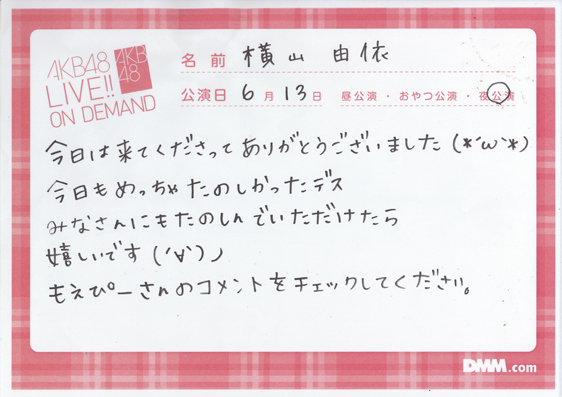 AKB48
LIVE!!
ON DEMAND
AKB
48
名前 横山 由依
公演日 6月13日 昼公演・おやつ公演・夜公演
今日は来てくださってありがとうございました(*´ω`*)
今日もめっちゃたのしかったデス
みなさんにもたのしんでいただけたら
嬉しいです(´∀`)ノ
もえぴーさんのコメントをチェックしてください。
DMM.com